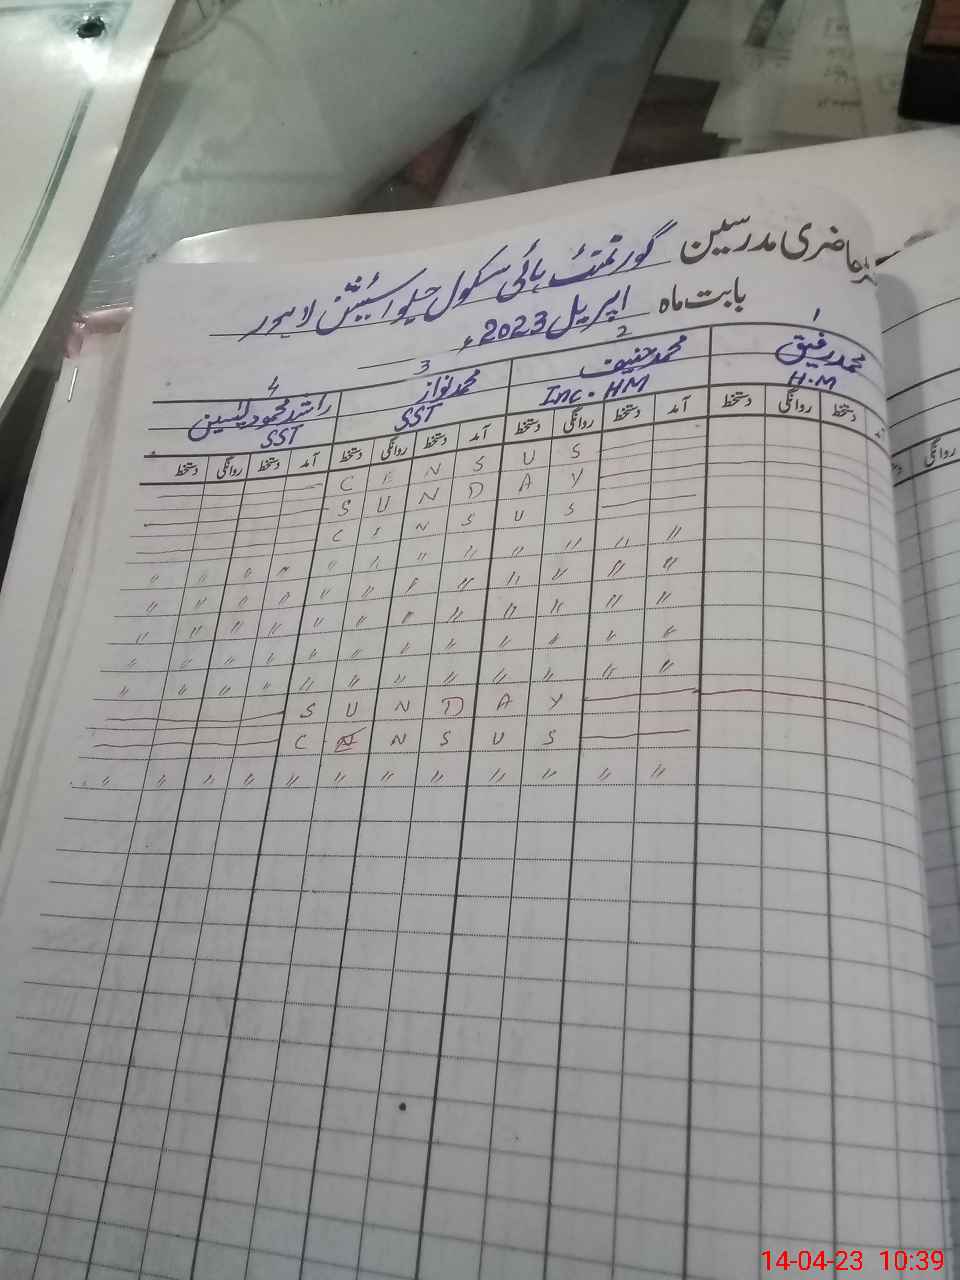 حاضری مدرسین گورنمنٹ ہائی سکول جلو اسٹیشن لاہور
بابت ماہ اپریل 2023ء
1 2 3 4
محمد رفیق محمد حنیف محمد نواز راشد محمود یٰسین
H.M Inc. HM SST SST
دستخط روانگی دستخط آمد دستخط روانگی دستخط آمد دستخط روانگی دستخط آمد دستخط روانگی دستخط
C E N S U S
S U N D A Y
C E N S U S
" " " " " " " " " " " "
" " " " " " " " " " " "
" " " " " " " " " " " "
" " " " " " " " " " " "
" " " " " " " " " " " "
S U N D A Y
C E N S U S
" " " " " " " " " " " "
روانگی
14-04-23 10:39